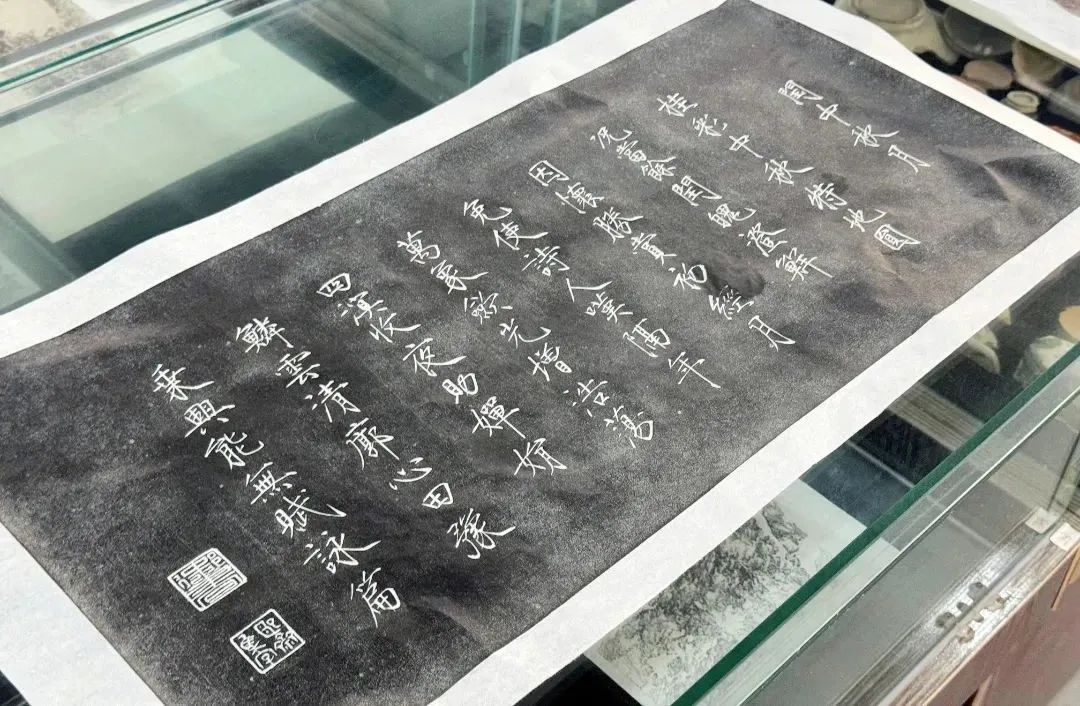 閏中秋月
桂彩中秋特地圓
況當餘閏魄澄鮮
因懷勝賞初經月
免使詩人嘆隔年
萬象歛光增浩蕩
四溟收夜助嬋娟
鱗雲清廓心田豫
乘興能無賦詠篇